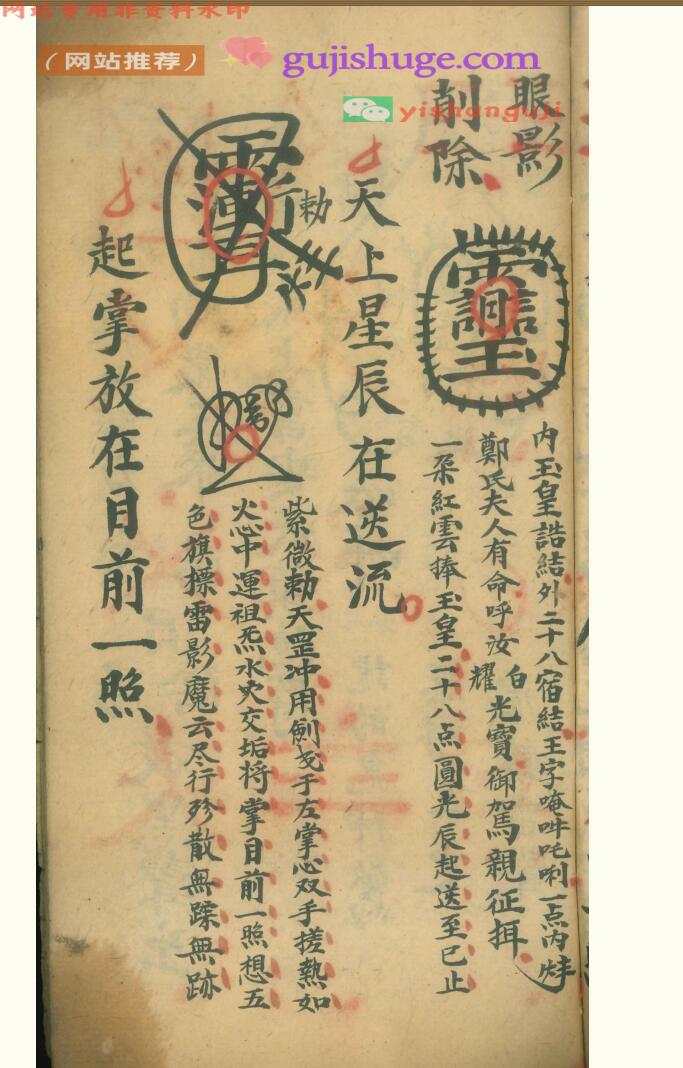 网站专用非资料水印
（网站推荐）
gujishuge.com
yishanguji
眼影
削除
内玉皇誥結外二十八宿結王字唵吽吒唎一点内
鄭氏夫人有命呼汝耀白光寶御駕親征揖
一朶紅雲捧玉皇二十八点圓光辰起送至巳止
天上星辰在送流。
勅
紫微勅天罡冲用劍戈于左掌心双手搓熱如
火心中運祖炁水火交垢将掌目前一照想五
色旗摽雷影魔云尽行殄散無踪無跡
起掌放在目前一照